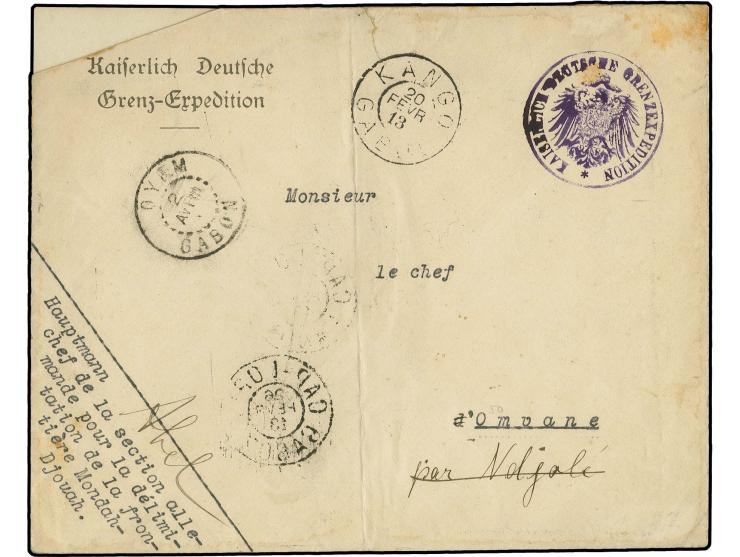 Kaiserlich Deutsche
Grenz-Expedition
KANGO
20
FEVR
13
GABON
KAISERLICH DEUTSCHE GRENZEXPEDITION *
OYEM
2
AVRIL
GABON
Monsieur
le chef
CAP-LOPEZ
GABON
d'Omvane
par Ndjolé
Hauptmann
chef de la section alle-
mande pour la délimi-
tation de la fron-
tière Mondah-
Djouah.
Abel